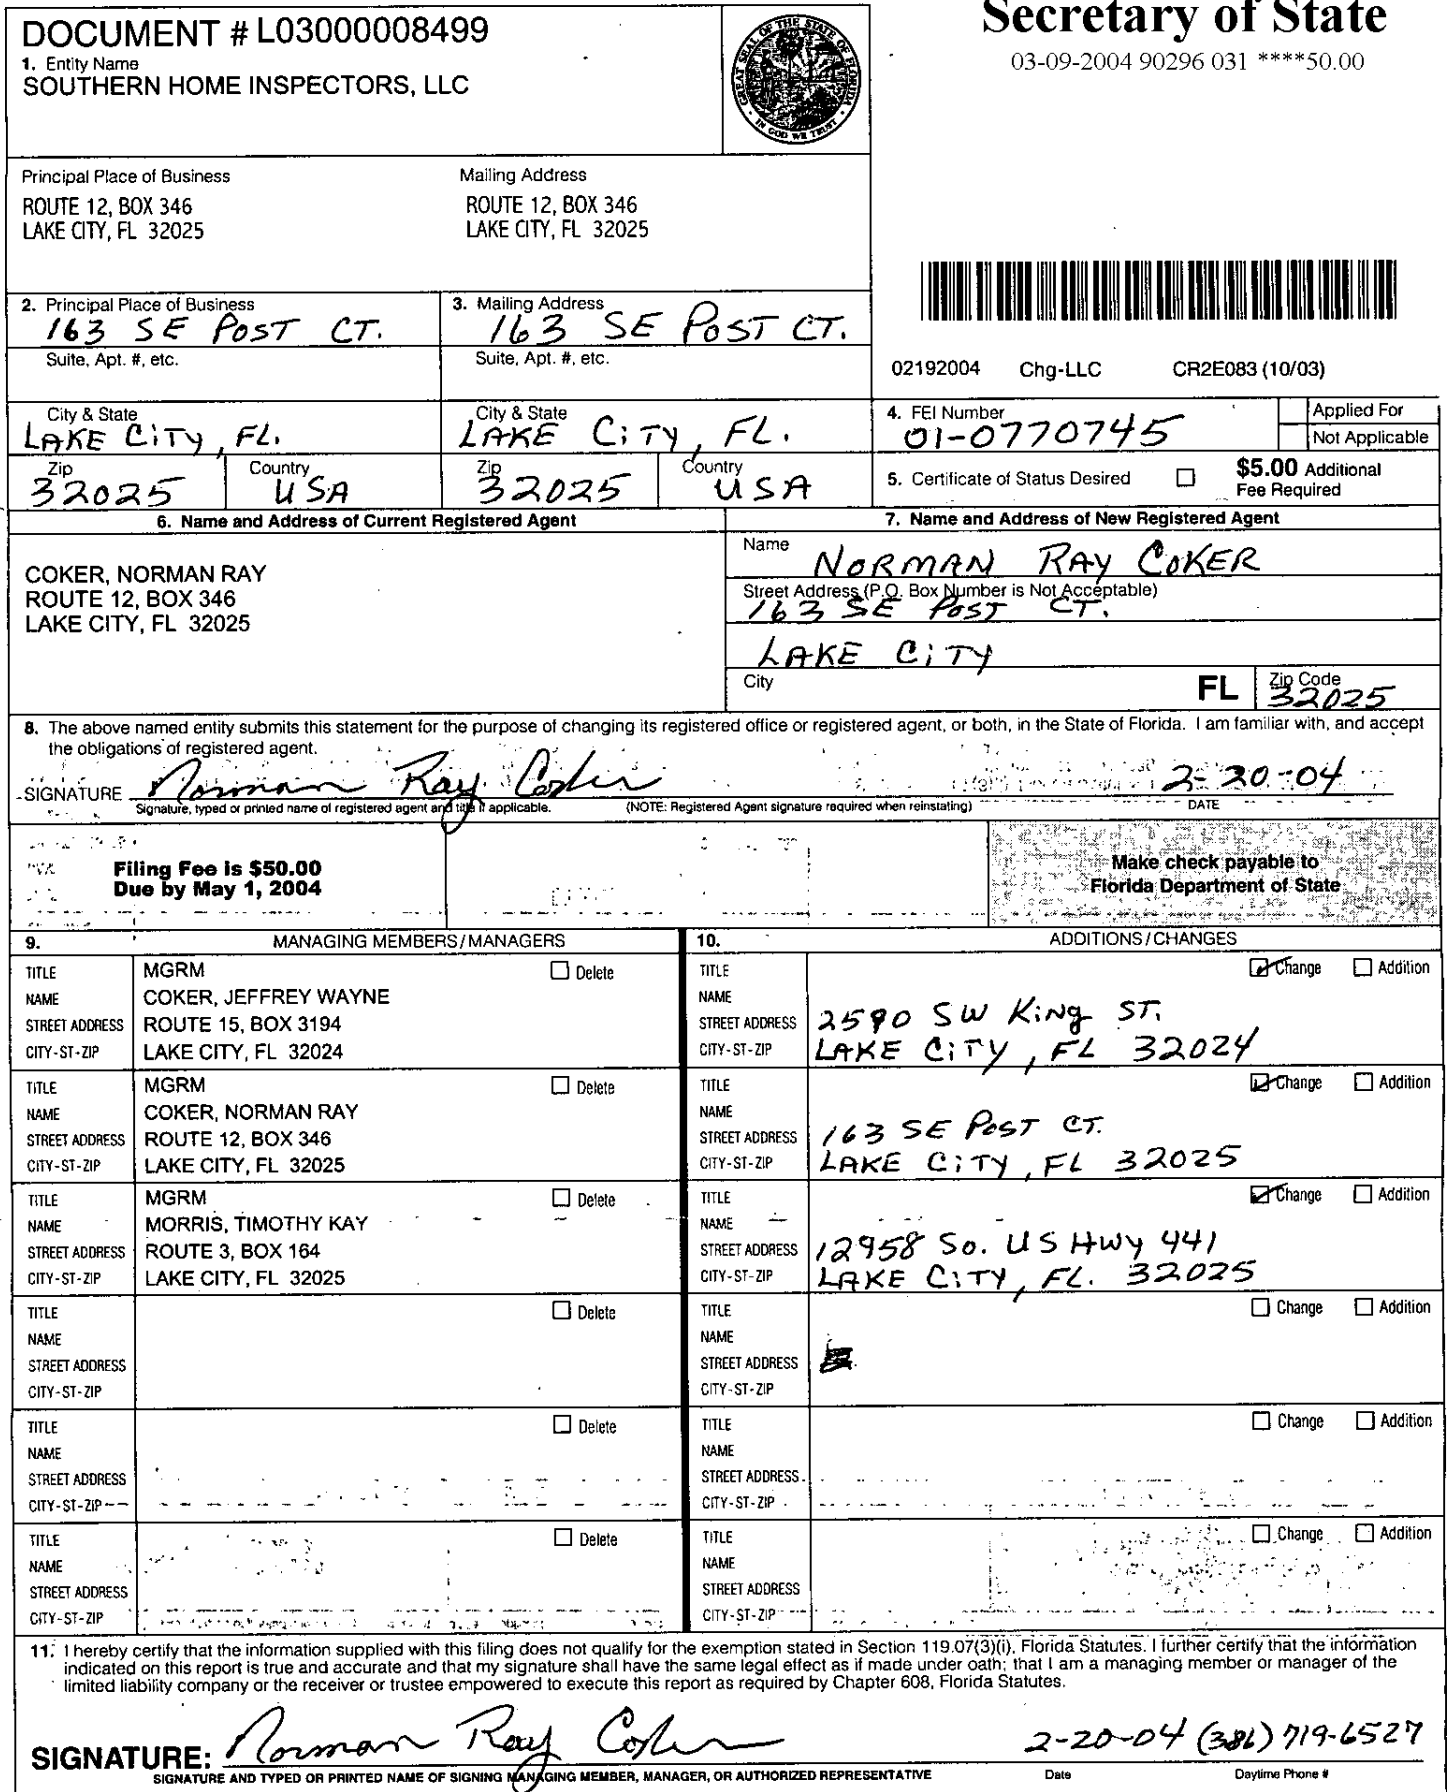 DOCUMENT # L03000008499
1. Entity Name
SOUTHERN HOME INSPECTORS, LLC
GREAT SEAL OF THE STATE OF FLORIDA
IN GOD WE TRUST
Secretary of State
03-09-2004 90296 031 ****50.00
Principal Place of Business
ROUTE 12, BOX 346
LAKE CITY, FL 32025
Mailing Address
ROUTE 12, BOX 346
LAKE CITY, FL 32025
02192004 Chg-LLC CR2E083 (10/03)
2. Principal Place of Business
163 SE POST CT.
Suite, Apt. #, etc.
City & State
LAKE CITY, FL.
Zip
32025
Country
USA
3. Mailing Address
163 SE POST CT.
Suite, Apt. #, etc.
City & State
LAKE CITY, FL.
Zip
32025
Country
USA
4. FEI Number
01-0770745
Applied For
Not Applicable
5. Certificate of Status Desired
$5.00 Additional
Fee Required
6. Name and Address of Current Registered Agent
COKER, NORMAN RAY
ROUTE 12, BOX 346
LAKE CITY, FL 32025
7. Name and Address of New Registered Agent
Name
NORMAN RAY COKER
Street Address (P.O. Box Number is Not Acceptable)
163 SE POST CT.
LAKE CITY
City
FL
Zip Code
32025
8. The above named entity submits this statement for the purpose of changing its registered office or registered agent, or both, in the State of Florida. I am familiar with, and accept
the obligations of registered agent.
SIGNATURE Norman Ray Coker 2-20-04
Signature, typed or printed name of registered agent and title if applicable. (NOTE: Registered Agent signature required when reinstating) DATE
Filing Fee is $50.00
Due by May 1, 2004
Make check payable to
Florida Department of State
9. MANAGING MEMBERS/MANAGERS
TITLE MGRM Delete
NAME COKER, JEFFREY WAYNE
STREET ADDRESS ROUTE 15, BOX 3194
CITY-ST-ZIP LAKE CITY, FL 32024
TITLE MGRM Delete
NAME COKER, NORMAN RAY
STREET ADDRESS ROUTE 12, BOX 346
CITY-ST-ZIP LAKE CITY, FL 32025
TITLE MGRM Delete
NAME MORRIS, TIMOTHY KAY
STREET ADDRESS ROUTE 3, BOX 164
CITY-ST-ZIP LAKE CITY, FL 32025
TITLE Delete
NAME
STREET ADDRESS
CITY-ST-ZIP
TITLE Delete
NAME
STREET ADDRESS
CITY-ST-ZIP
TITLE Delete
NAME
STREET ADDRESS
CITY-ST-ZIP
10. ADDITIONS/CHANGES
TITLE Change Addition
NAME
STREET ADDRESS 2590 SW King ST.
CITY-ST-ZIP LAKE CITY, FL 32024
TITLE Change Addition
NAME
STREET ADDRESS 163 SE POST CT.
CITY-ST-ZIP LAKE CITY, FL 32025
TITLE Change Addition
NAME
STREET ADDRESS 12958 So. US HWY 441
CITY-ST-ZIP LAKE CITY, FL. 32025
TITLE Change Addition
NAME
STREET ADDRESS
CITY-ST-ZIP
TITLE Change Addition
NAME
STREET ADDRESS
CITY-ST-ZIP
TITLE Change Addition
NAME
STREET ADDRESS
CITY-ST-ZIP
11. I hereby certify that the information supplied with this filing does not qualify for the exemption stated in Section 119.07(3)(i), Florida Statutes. I further certify that the information
indicated on this report is true and accurate and that my signature shall have the same legal effect as if made under oath; that I am a managing member or manager of the
limited liability company or the receiver or trustee empowered to execute this report as required by Chapter 608, Florida Statutes.
SIGNATURE: Norman Ray Coker 2-20-04 (386) 719-6527
SIGNATURE AND TYPED OR PRINTED NAME OF SIGNING MANAGING MEMBER, MANAGER, OR AUTHORIZED REPRESENTATIVE Date Daytime Phone #